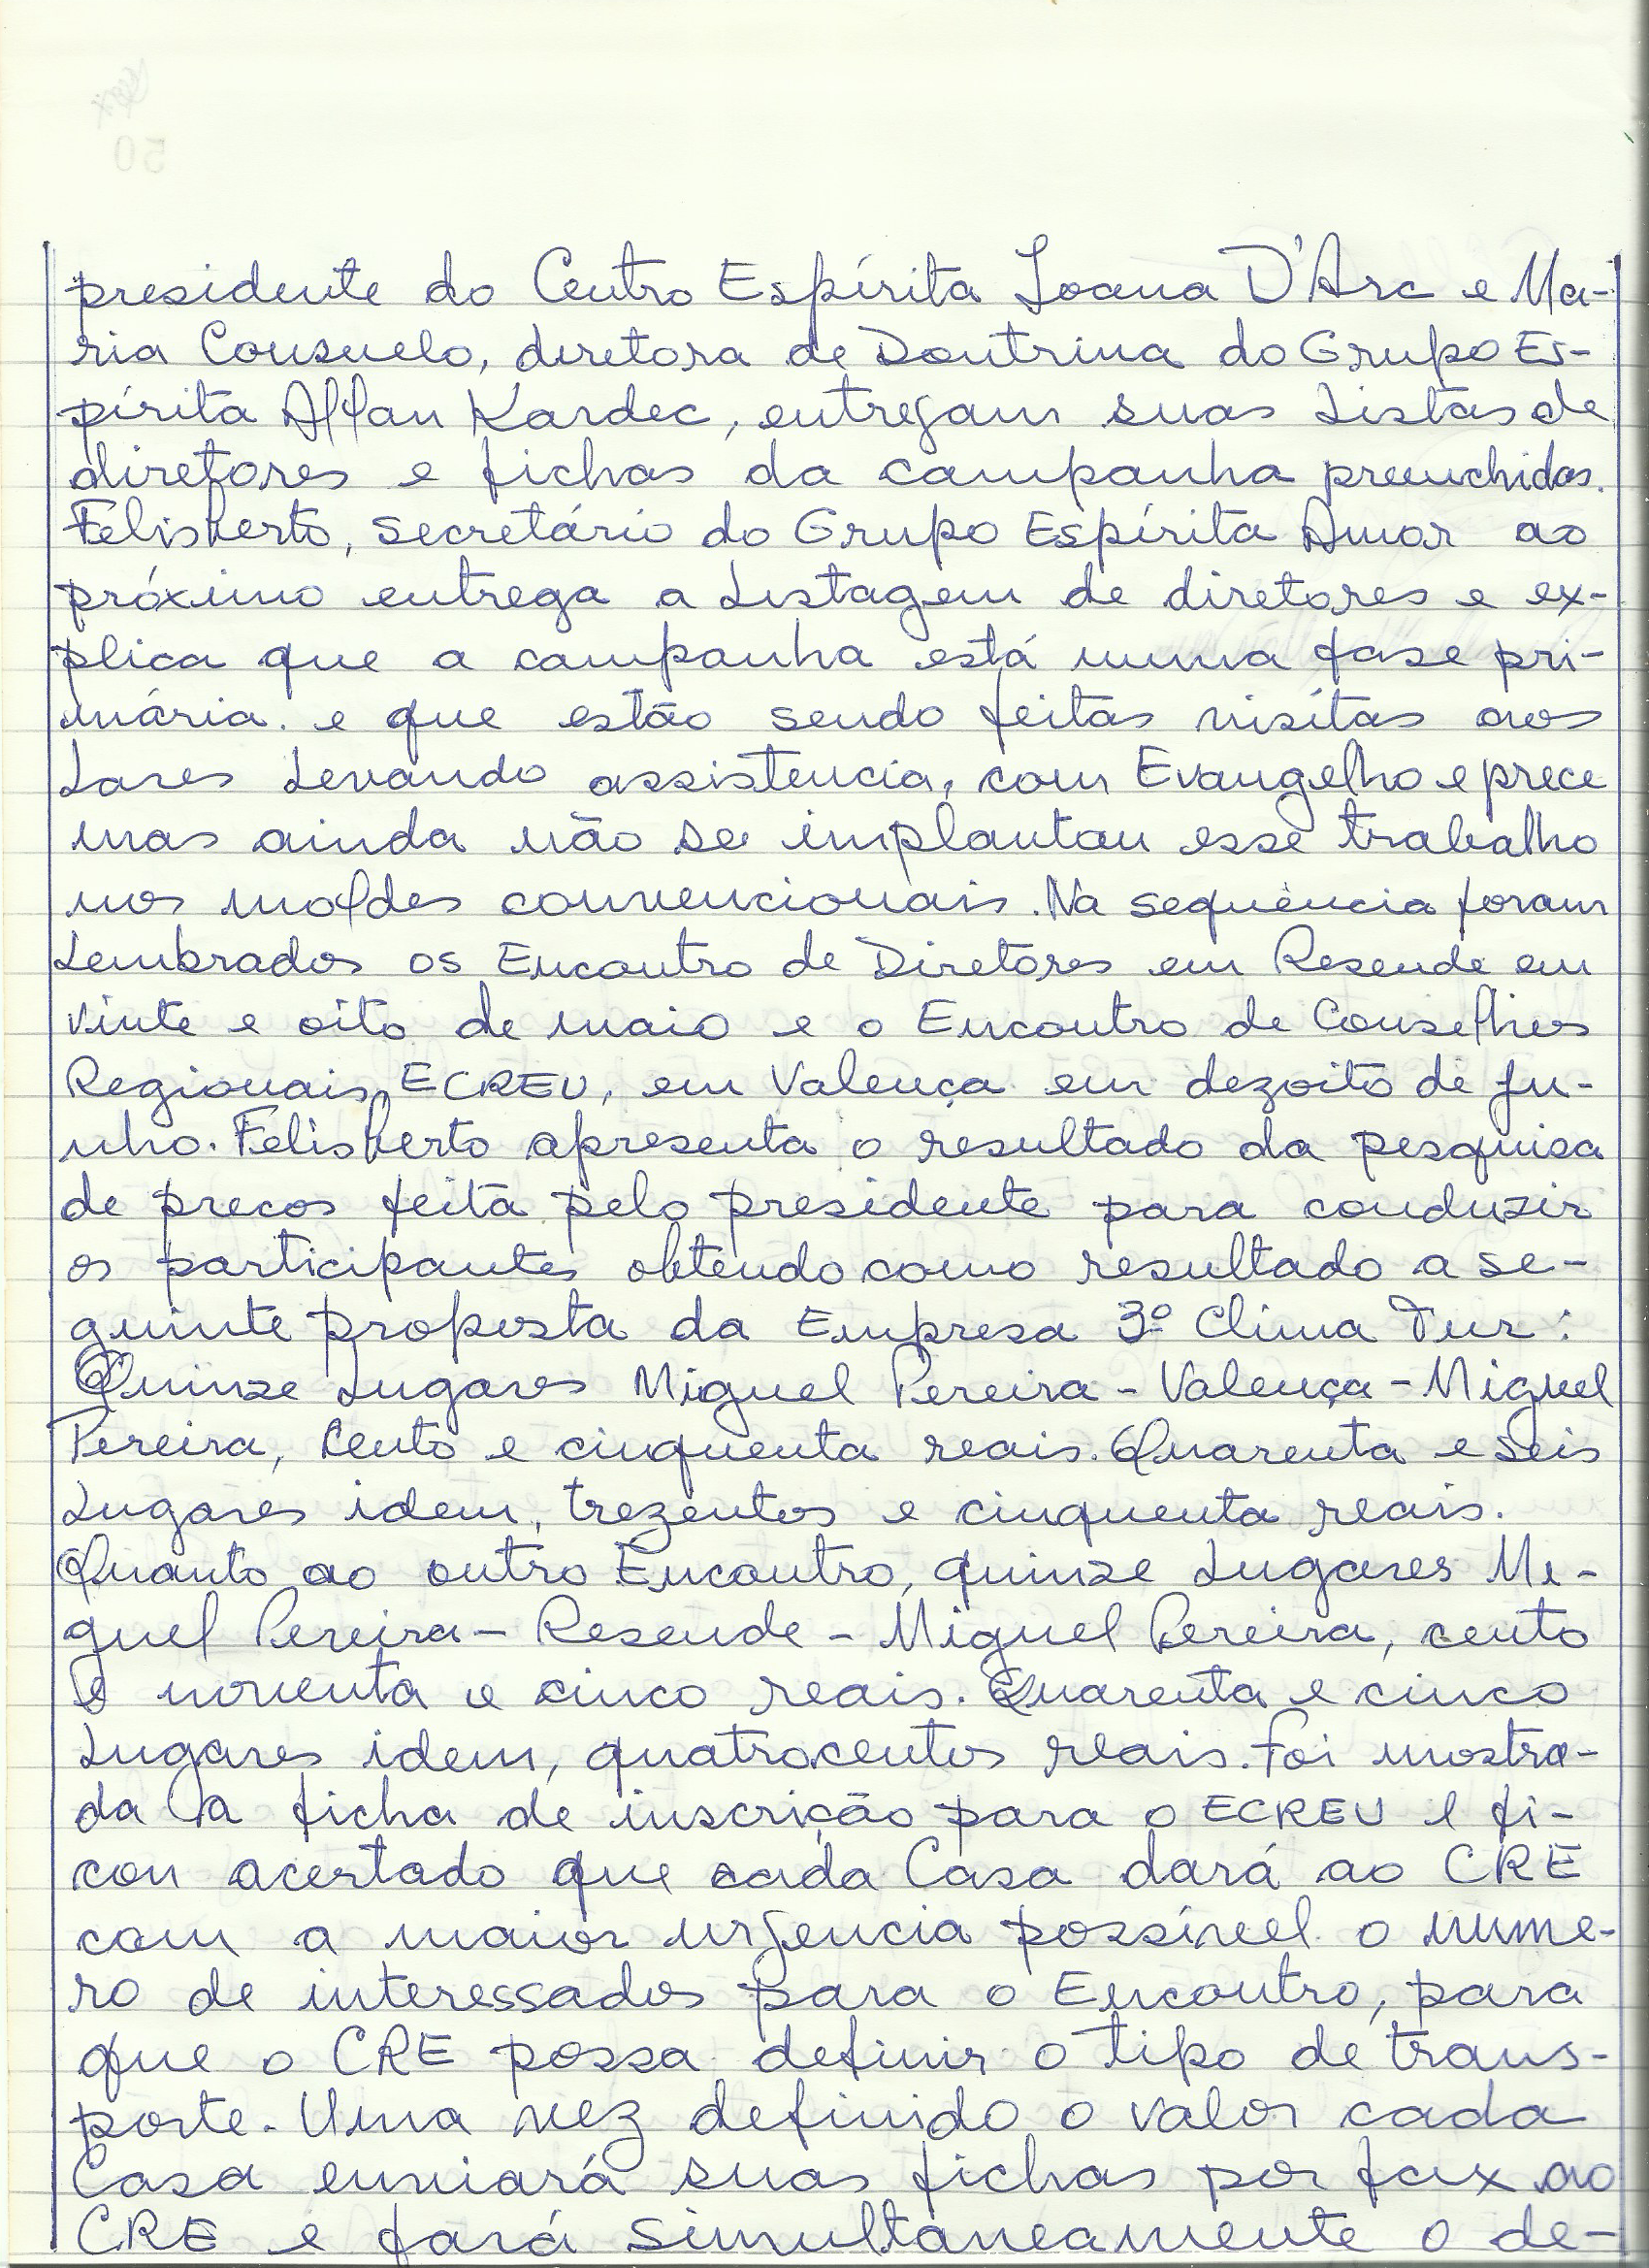 presidente do Centro Espírita Joana D'Arc e Ma-
ria Consuelo, diretora de Doutrina do Grupo Es-
pírita Allan Kardec, entregam suas Listas de
diretores e fichas da campanha preenchidas.
Felisberto, secretário do Grupo Espírita Amor ao
próximo entrega a Listagem de diretores e ex-
plica que a campanha está numa fase pri-
mária. e que estão sendo feitas visitas aos
Lares Levando assistencia, com Evangelho e prece
mas ainda não se implantou esse trabalho
nos moldes convencionais. Na sequência foram
Lembrados os Encontro de Diretores em Resende em
vinte e oito de maio e o Encontro de Conselhos
Regionais, ECREU, em Valença em dezoito de ju-
nho. Felisberto apresenta o resultado da pesquisa
de precos feita pelo presidente para conduzir
os participantes obtendo como resultado a se-
guinte proposta da Empresa 3º Clima Tur:
Quinze Lugares Miguel Pereira - Valença - Miguel
Pereira, Cento e cinquenta reais. Quarenta e seis
Lugares idem, trezentos e cinquenta reais.
Quanto ao outro Encontro, quinze Lugares Mi-
guel Pereira - Resende - Miguel Pereira, cento
e noventa e cinco reais. Quarenta e cinco
Lugares idem, quatrocentos reais. Foi mostra-
da a ficha de inscrição para o ECREU e fi-
cou acertado que cada Casa dará ao CRE
com a maior urgencia possível o nume-
ro de interessados para o Encontro, para
que o CRE possa definir o tipo de trans-
porte. Uma vez definido o valor cada
Casa enviará suas fichas por fax ao
CRE e fará simultaneamente o de-